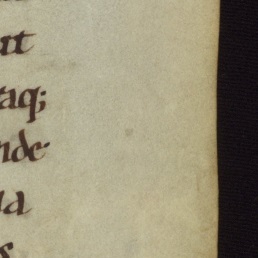 ut
taq;
nde
la
s